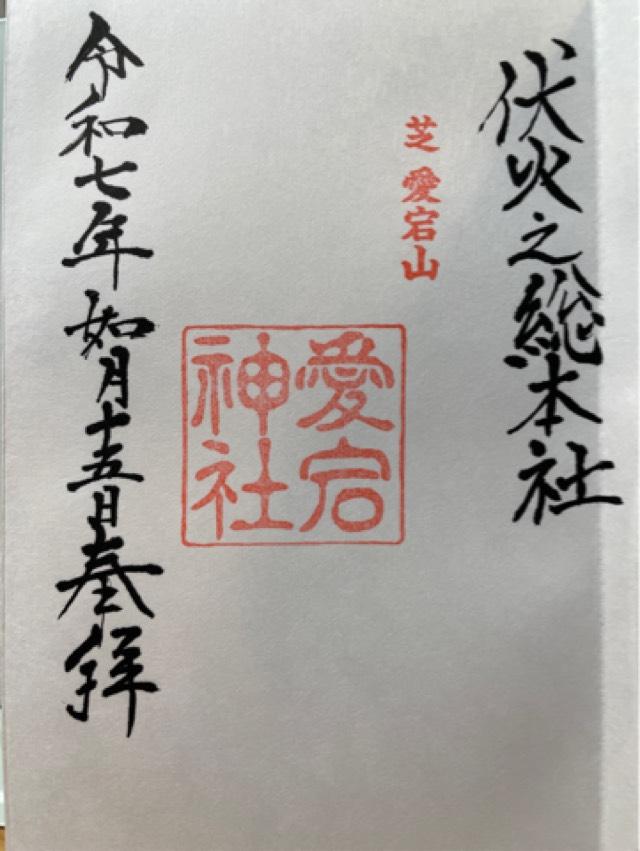 伏火之総本社
芝 愛宕山
愛宕
神社
令和七年如月十五日奉拝